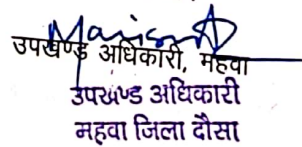 उपखण्ड अधिकारी, महवा
उपखण्ड अधिकारी
महवा जिला दौसा